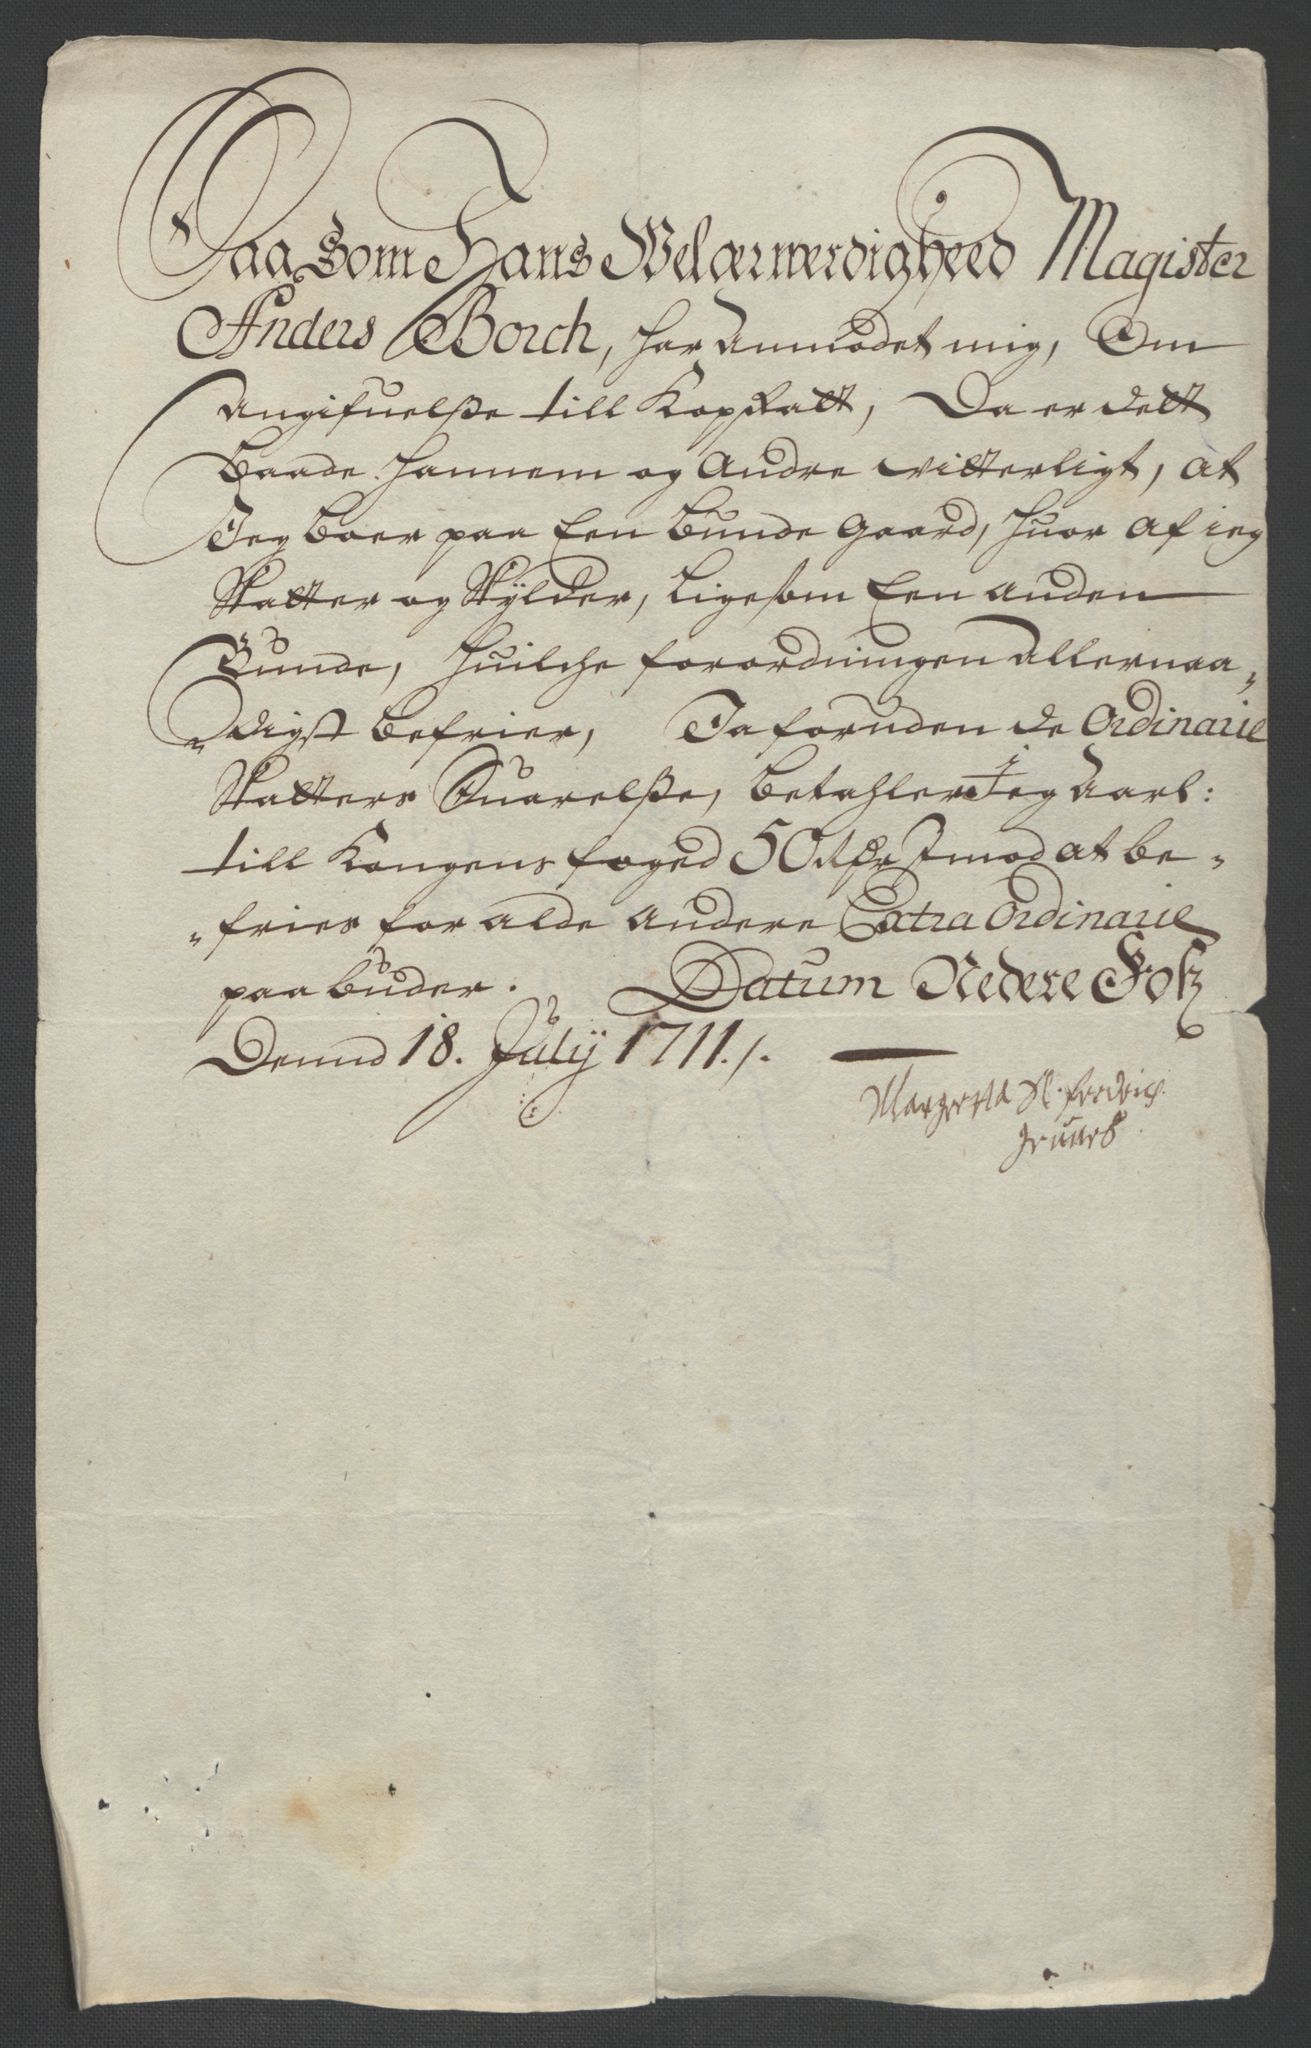 Saa Som Hans Welærwerdigheed Magister
Anders Borch, har Anmodet mig, Om
Angifuelße till KopSkatt, Da er dett
baade hannem og Andre vitterligt, at
Jeg boer paa Een bunde gaard, huor af ieg
Skatter og Skÿlder, ligesom Een anden
Bunde, huilche forordningen allernaa„
„digst befrier, Ja foruden de Ordinarie
Skatters Suarelße, betahler Jeg aarl:
till Kongens foged 50 Rdr Imod at be„
„fries for alde andere Extra Ordinarie
paabuder. Datum Nedere Foß
Dennd 18. Julÿ 1711./.
Margretta Sl. fredrich